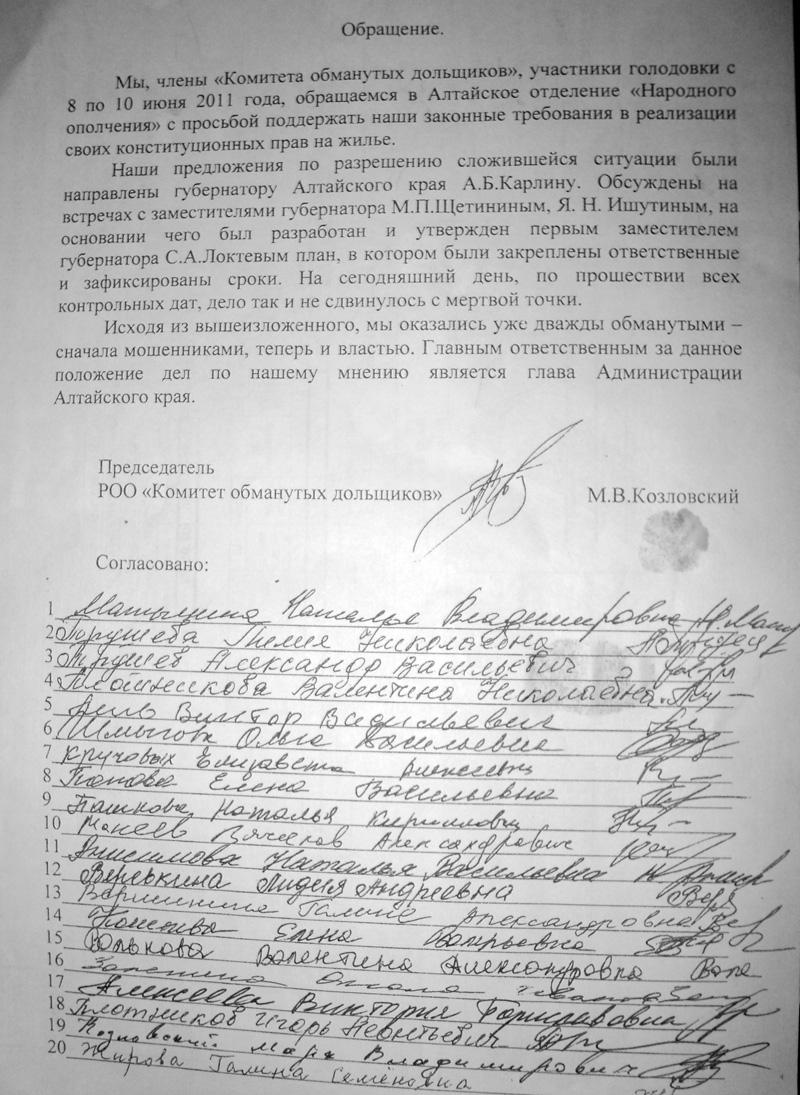 Обращение.
Мы, члены «Комитета обманутых дольщиков», участники голодовки с
8 по 10 июня 2011 года, обращаемся в Алтайское отделение «Народного
ополчения» с просьбой поддержать наши законные требования в реализации
своих конституционных прав на жилье.
Наши предложения по разрешению сложившейся ситуации были
направлены губернатору Алтайского края А.Б.Карлину. Обсуждены на
встречах с заместителями губернатора М.П.Щетининым, Я. Н. Ишутиным, на
основании чего был разработан и утвержден первым заместителем
губернатора С.А.Локтевым план, в котором были закреплены ответственные
и зафиксированы сроки. На сегодняшний день, по прошествии всех
контрольных дат, дело так и не сдвинулось с мертвой точки.
Исходя из вышеизложенного, мы оказались уже дважды обманутыми –
сначала мошенниками, теперь и властью. Главным ответственным за данное
положение дел по нашему мнению является глава Администрации
Алтайского края.
Председатель
РОО «Комитет обманутых дольщиков» М.В.Козловский
Согласовано:
1 Наталья Владимировна
2 Николаевна
3 Александр Васильевич
4 Плотникова Валентина Николаевна
5 Виктор Васильевич
6 Ольга Васильевна
7 Кручовых Елизавета Алексеевна
8 Попова Елена Васильевна
9 Пашкова Наталья Кирилловна
10 Вячеслав Александрович
11 Анисимова Наталья Васильевна
12 Веревкина Лидия Андреевна
13 Вершинина Галина Александровна
14 Елена Валерьевна
15 Волькова Валентина Александровна
16
17 Алексеева Виктория
18 Плотников Игорь Леонтьевич
19 Козловский Марк Владимирович
20 Жирова Галина Семёновна